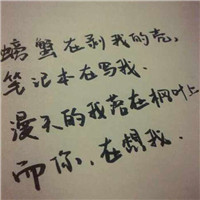 螃蟹在剥我的壳,
笔记本在写我.
漫天的我落在枫叶上
而你,在想我.